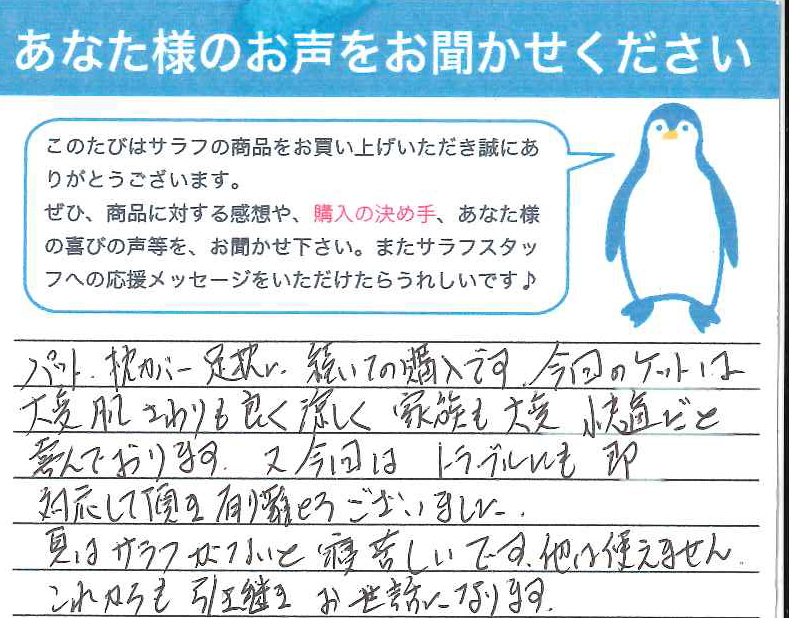 あなた様のお声をお聞かせください
このたびはサラフの商品をお買い上げいただき誠にあ
りがとうございます。
ぜひ、商品に対する感想や、購入の決め手、あなた様
の喜びの声等を、お聞かせ下さい。またサラフスタッ
フへの応援メッセージをいただけたらうれしいです♪
パット、枕カバー 足枕に 続いての購入です。今回のケットは
大変 肌さわりも良く涼しく 家族も大変 快適だと
喜んでおります。又今回は トラブルにも 即
対応して頂き有り難とうございました。
夏はサラフがないと 寝苦しいです。他は使えません。
これからも 引き継き お世話になります。